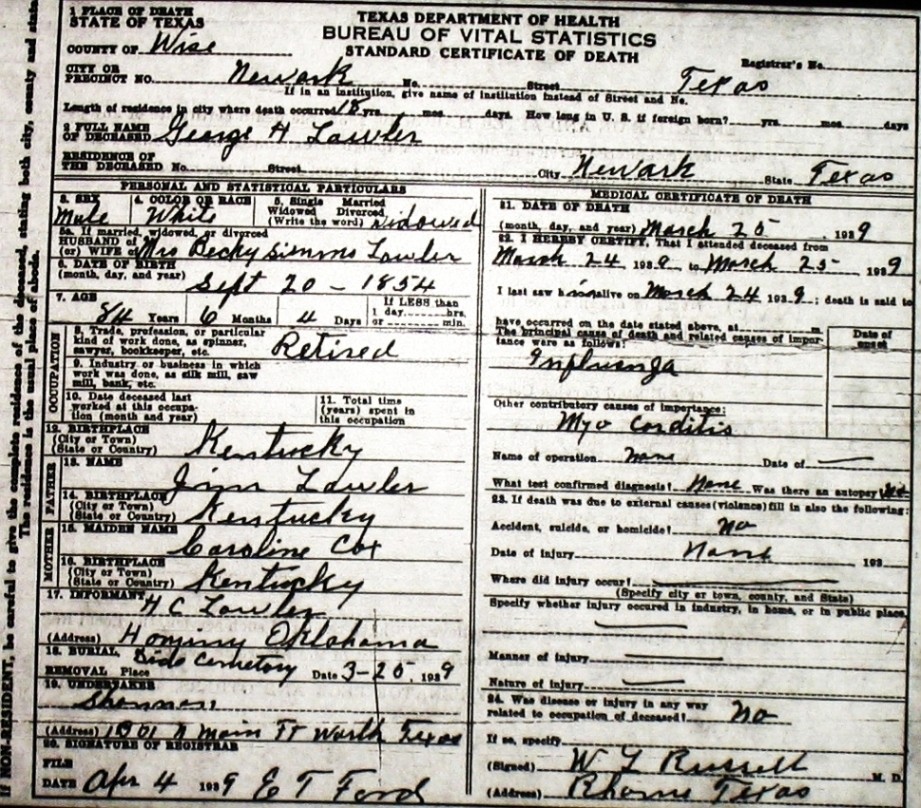 1 PLACE OF DEATH
STATE OF TEXAS
TEXAS DEPARTMENT OF HEALTH
BUREAU OF VITAL STATISTICS
STANDARD CERTIFICATE OF DEATH
COUNTY OF Wise
Registrar's No.
CITY OR PRECINCT NO. Newark No. Street Texas
If in an institution, give name of institution instead of Street and No.
Length of residence in city where death occurred 18 yrs. mos. days. How long in U. S. if foreign born? yrs. mos. days
2 FULL NAME OF DECEASED George H Lawler
RESIDENCE OF THE DECEASED No. Street City Newark State Texas
PERSONAL AND STATISTICAL PARTICULARS
3. SEX Male
4. COLOR OR RACE White
5. Single Married Widowed Divorced (Write the word) Widowed
5a. If married, widowed, or divorced
HUSBAND OF (or) WIFE OF Mrs Becky Simms Lawler
6. DATE OF BIRTH
(month, day, and year) Sept 20 - 1854
7. AGE 84 Years 6 Months 4 Days If LESS than 1 day hrs. or min.
OCCUPATION
8. Trade, profession, or particular kind of work done, as spinner, sawyer, bookkeeper, etc. Retired
9. Industry or business in which work was done, as silk mill, saw mill, bank, etc.
10. Date deceased last worked at this occupation (month and year)
11. Total time (years) spent in this occupation
12. BIRTHPLACE
(City or Town)
(State or Country) Kentucky
FATHER
13. NAME Jim Lawler
14. BIRTHPLACE
(City or Town)
(State or Country) Kentucky
MOTHER
15. MAIDEN NAME Caroline Cox
16. BIRTHPLACE
(City or Town)
(State or Country) Kentucky
17. INFORMANT H C Lawler
(Address) Hominy Oklahoma
18. BURIAL, REMOVAL Place Dido Cemetery Date 3-25, 1939
19. UNDERTAKER Shannon
(Address) N Main Ft Worth Texas
20. SIGNATURE OF REGISTRAR
FILE DATE Apr 4 1939 E T Ford
MEDICAL CERTIFICATE OF DEATH
21. DATE OF DEATH
(month, day, and year) March 25, 1939
22. I HEREBY CERTIFY, That I attended deceased from
March 24 1939, to March 25 1939
I last saw him alive on March 24 1939; death is said to
have occurred on the date stated above, at m
The principal cause of death and related causes of importance were as follows:
Date of onset
Influenza
Other contributory causes of importance:
Myo Carditis
Name of operation None Date of
What test confirmed diagnosis? None Was there an autopsy No
23. If death was due to external causes (violence) fill in also the following:
Accident, suicide, or homicide? No
Date of injury None 193
Where did injury occur?
(Specify city or town, county, and State)
Specify whether injury occured in industry, in home, or in public place.
Manner of injury
Nature of injury
24. Was disease or injury in any way related to occupation of deceased? No
If so, specify
(Signed) W L Russell M. D.
(Address) Rhome Texas
If NON-RESIDENT, be careful to give the complete residence of the deceased, stating both city, county and state.
The residence is the usual place of abode.